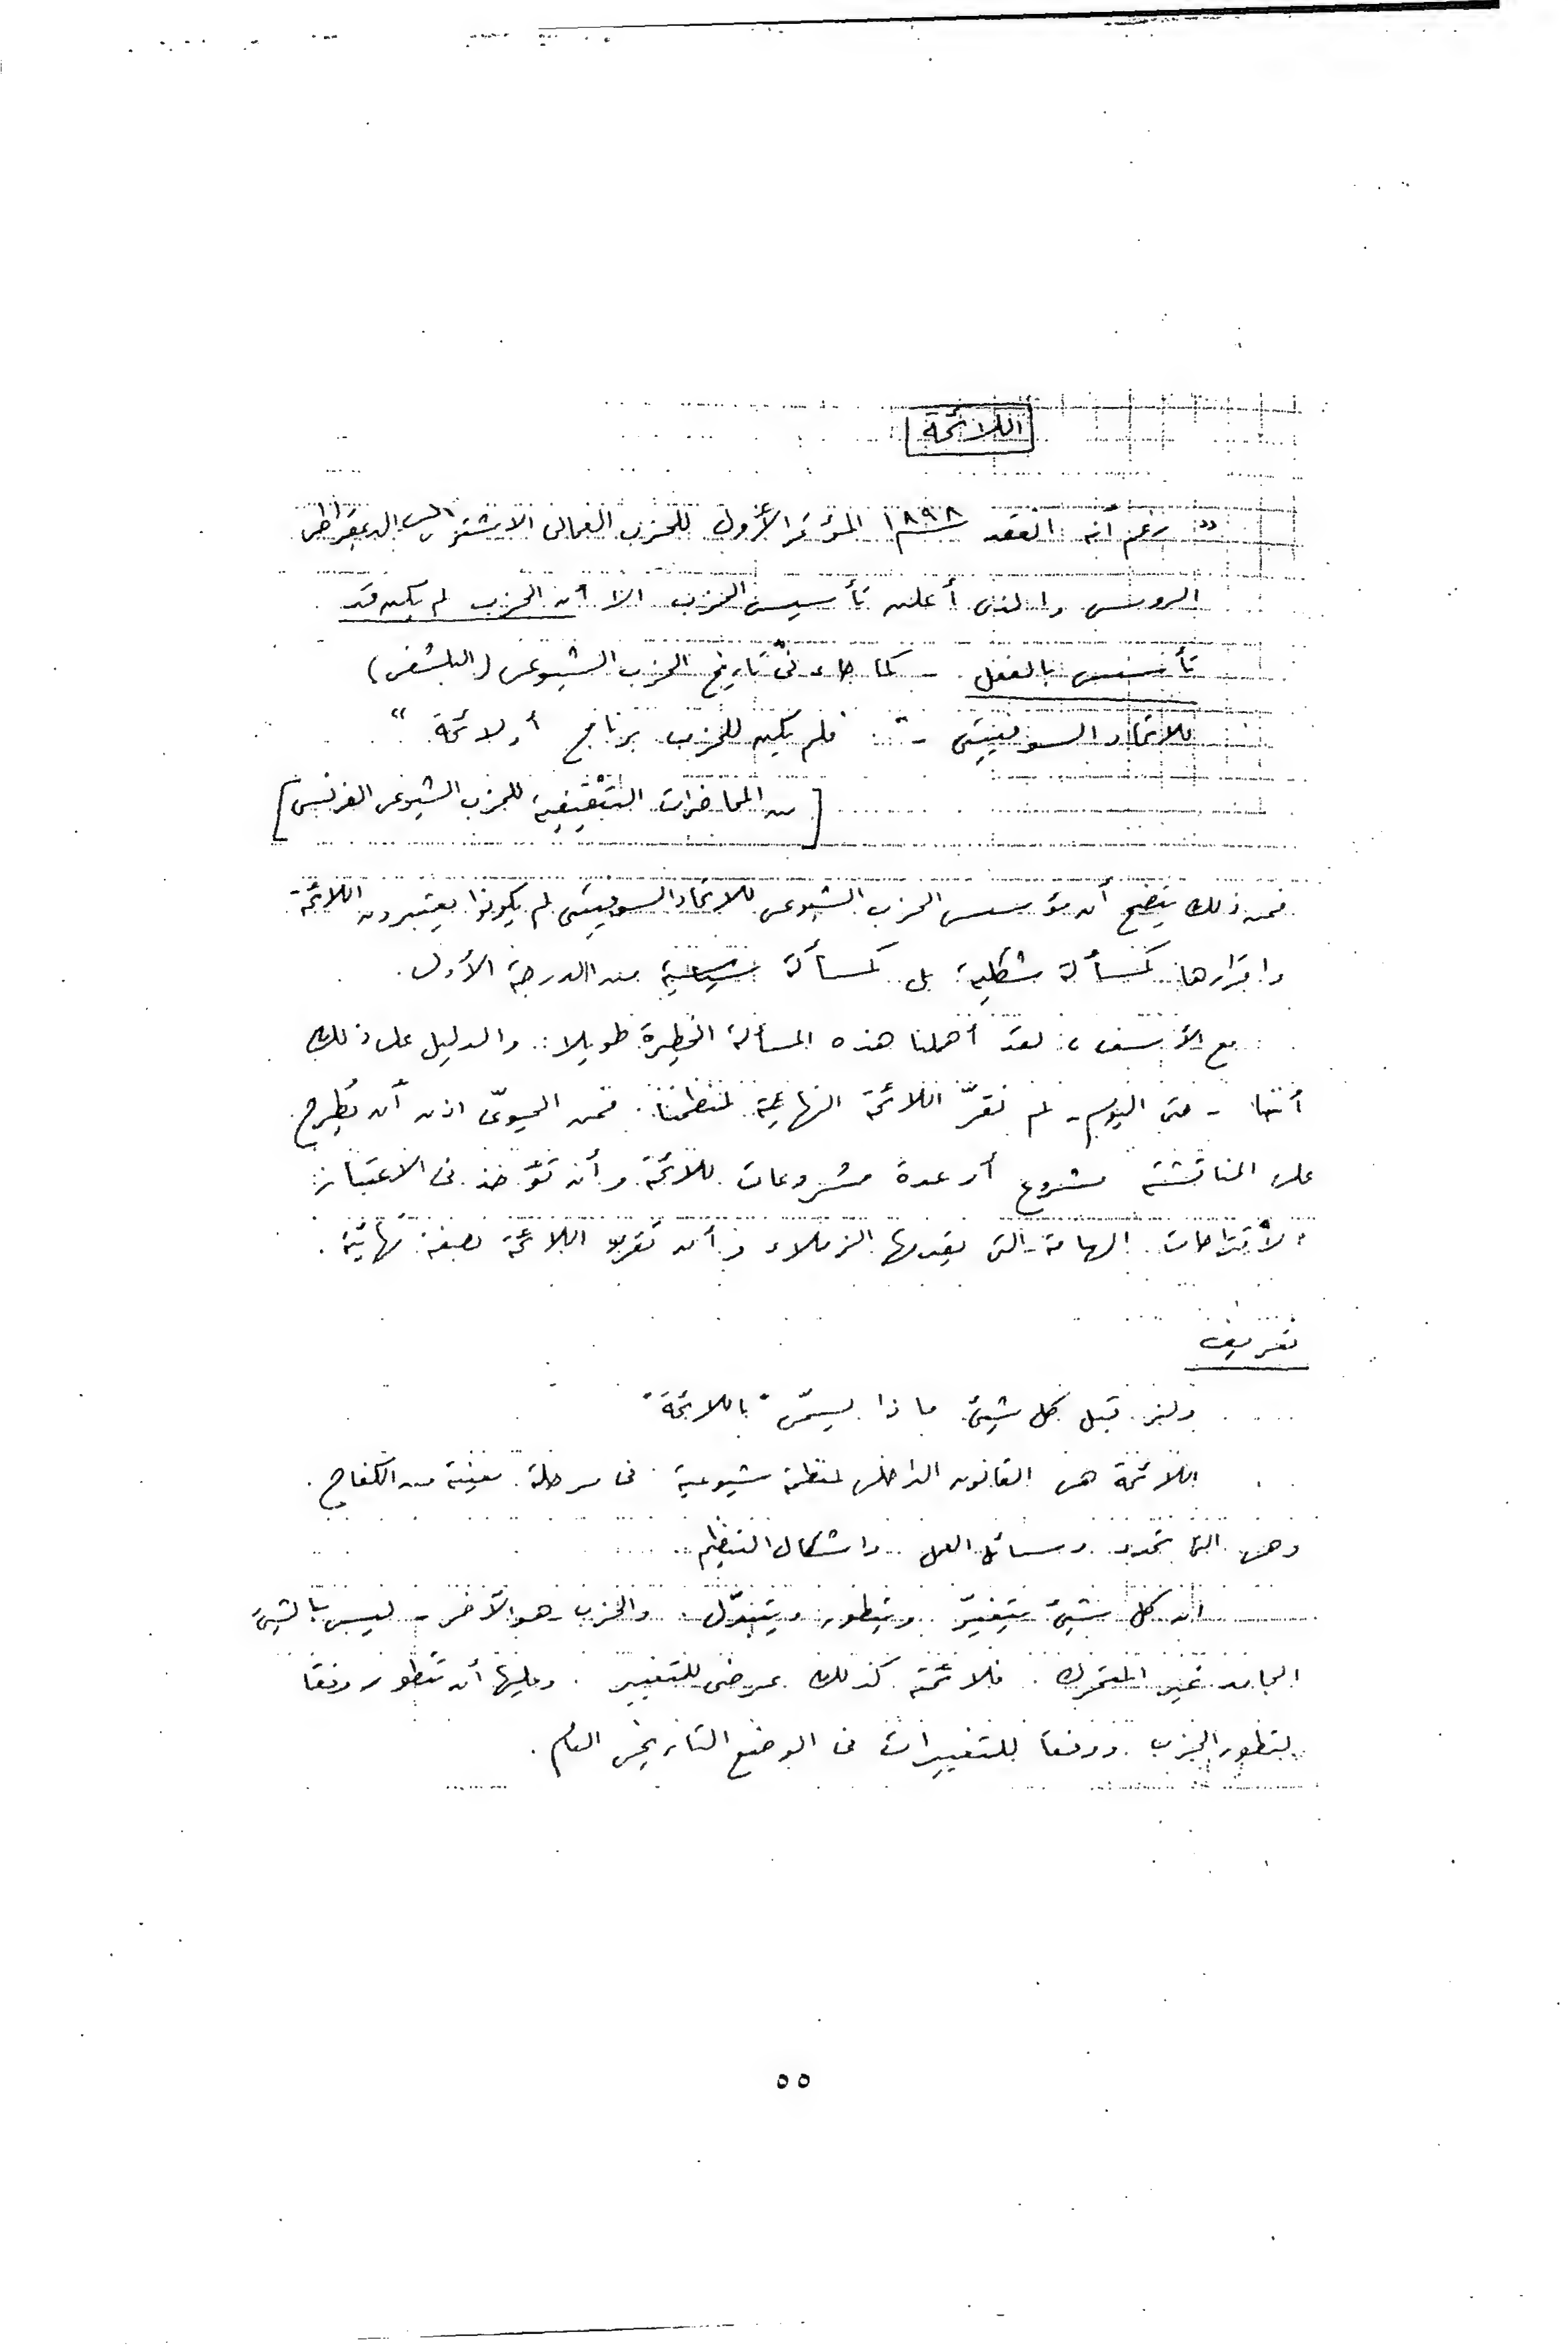 اللائحة
" رغم أنه انعقد سنة ١٨٩٨ المؤتمر الأول للحزب العمالى الاشتراكى الديمقراطى
الروسى والذى أعلن تأسيس الحزب الا أن الحزب لم يكن قد
تأسس بالفعل - كما جاء فى تاريخ الحزب الشيوعى (البلشفى)
للاتحاد السوفييتى - فلم يكن للحزب برنامج أو لائحة "
[من المحاضرات التثقيفية للحزب الشيوعى الفرنسى]
فمن ذلك يتضح أن مؤسسى الحزب الشيوعى للاتحاد السوفييتى لم يكونوا يعتبرون اللائحة
واقرارها كمسألة شكلية بل كمسألة سياسية من الدرجة الأولى .
مع الأسف ، لقد أهملنا هذه المسألة الخطيرة طويلا . والدليل على ذلك
أننا - حتى اليوم - لم نقرّ اللائحة النهائية لمنظمتنا . فمن الحيوىّ اذن أن يُطرح
على المناقشة مشروع أو عدة مشروعات للائحة وأن تؤخذ فى الاعتبار
الاقتراحات الهامة التى يقدمها الزملاء وأن تقرّ اللائحة بصفة نهائية .
تعريف
ولنر قبل كل شيئ ماذا يسمّى " باللائحة "
اللائحة هى القانون الداخلى لمنظمة شيوعية فى مرحلة معينة من الكفاح .
وهى التى تحدد وسائل العمل واشكال التنظيم .
ان كل شيئ يتغيّر ويتطور ويتبدّل . والحزب - هو الآخر - ليس بالشيئ
الجامد غير المتحرك . فلائحته كذلك عرضى للتغيير . وعليها أن تتطور وفقا
لتطور الحزب ووفقا للتغييرات فى الوضع التاريخى العام .
٥٥